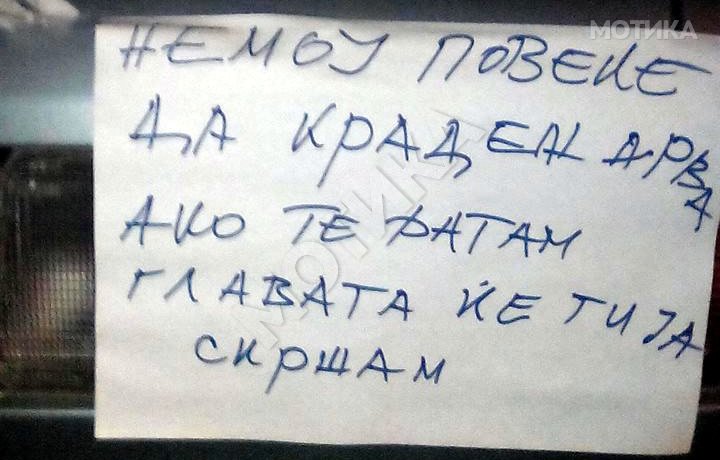 МОТИКА
НЕМОЈ ПОВЕКЕ
ДА КРАДЕШ ДРВА
АКО ТЕ ФАТАМ
ГЛАВАТА ЌЕ ТИ ЈА
СКРШАМ
МОТИКА